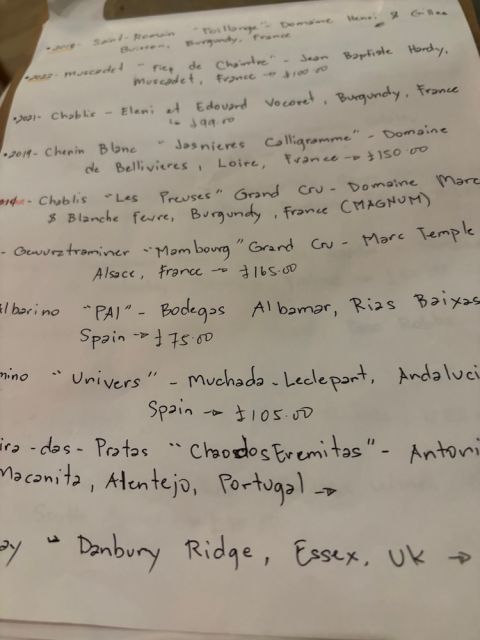 •2018- Saint-Romain "Poillange" - Domaine Henri & Gilles
Buisson, Burgundy, France
•2022- Muscadet "Fief de Chaintre" - Jean Baptiste Hardy,
Muscadet, France → £100.00
•2021- Chablis - Eleni et Edouard Vocoret, Burgundy, France
↳ £99.00
•2019- Chenin Blanc "Jasnieres Calligramme" - Domaine
de Bellivieres, Loire, France → £150.00
- Chablis "Les Preuses" Grand Cru - Domaine Marc
& Blanche Fevre, Burgundy, France (MAGNUM)
- Gewurztraminer "Mambourg" Grand Cru - Marc Temple
Alsace, France → £165.00
Albarino "PAI" - Bodegas Albamar, Rias Baixas
Spain → £75.00
mino "Univers" - Muchada-Leclepart, Andaluci
Spain → £105.00
ira-das-Pratas "Chaos dos Eremitas" - Antoni
Macanita, Alentejo, Portugal →
ay " Danbury Ridge, Essex, UK →